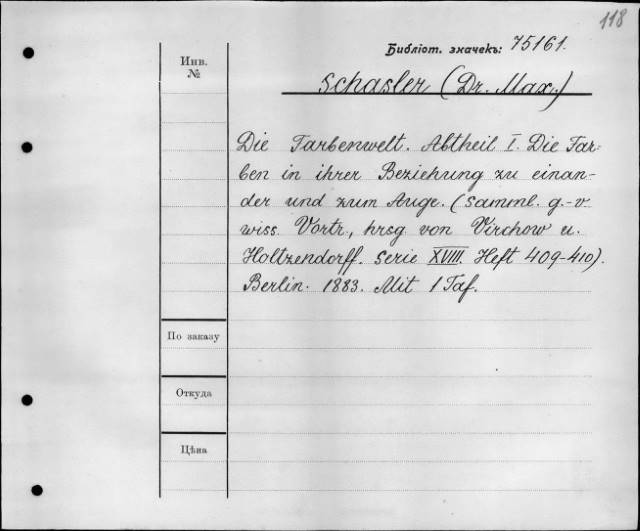 118
Библіот. значекъ: 75161.
Инв.
№
Schasler (Dr. Max.)
Die Farbenwelt. Abtheil I. Die Far-
ben in ihrer Beziehung zu einan-
der und zum Auge. (Samml. g.-v
wiss. Vortr., hrsg. von Virchow u.
Holtzendorff. Serie XVIII. Heft 409-410).
Berlin. 1883. Mit 1 Taf.
По заказу
Откуда
Цѣна